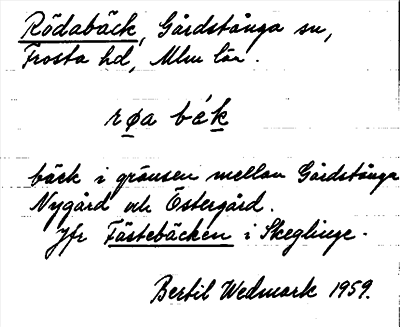 Rödabäck, Gårdstånga sn,
Frosta hd, Mlm län.
røa bék
bäck i gränsen mellan Gårdstånga
Nygård och Östergård.
Jfr Fästebäcken i Skeglinge.
Bertil Wedmark 1959.